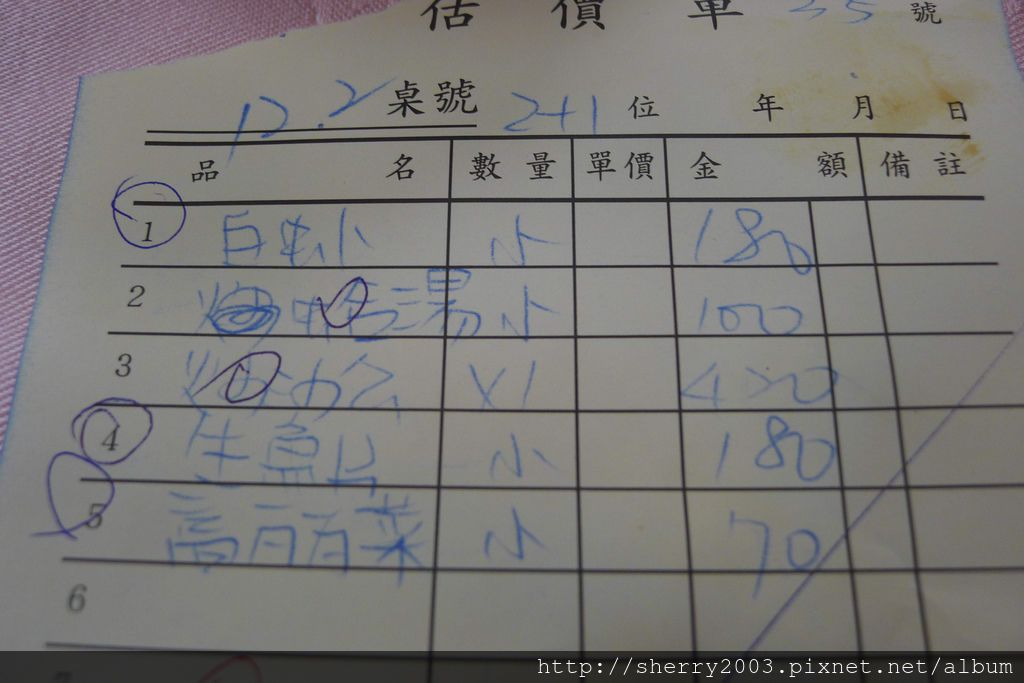 估價單 35 號
12.2 桌號 2+1 位 年 月 日
品名 數量 單價 金額 備註
1 白 小 小 180
2 湯 小 100
3 X1 420
4 生 片 小 180
5 高 菜 小 70
6
http://sherry2003.pixnet.net/album